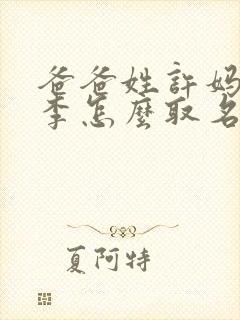 爸爸姓許妈
李怎麼取名
夏阿特